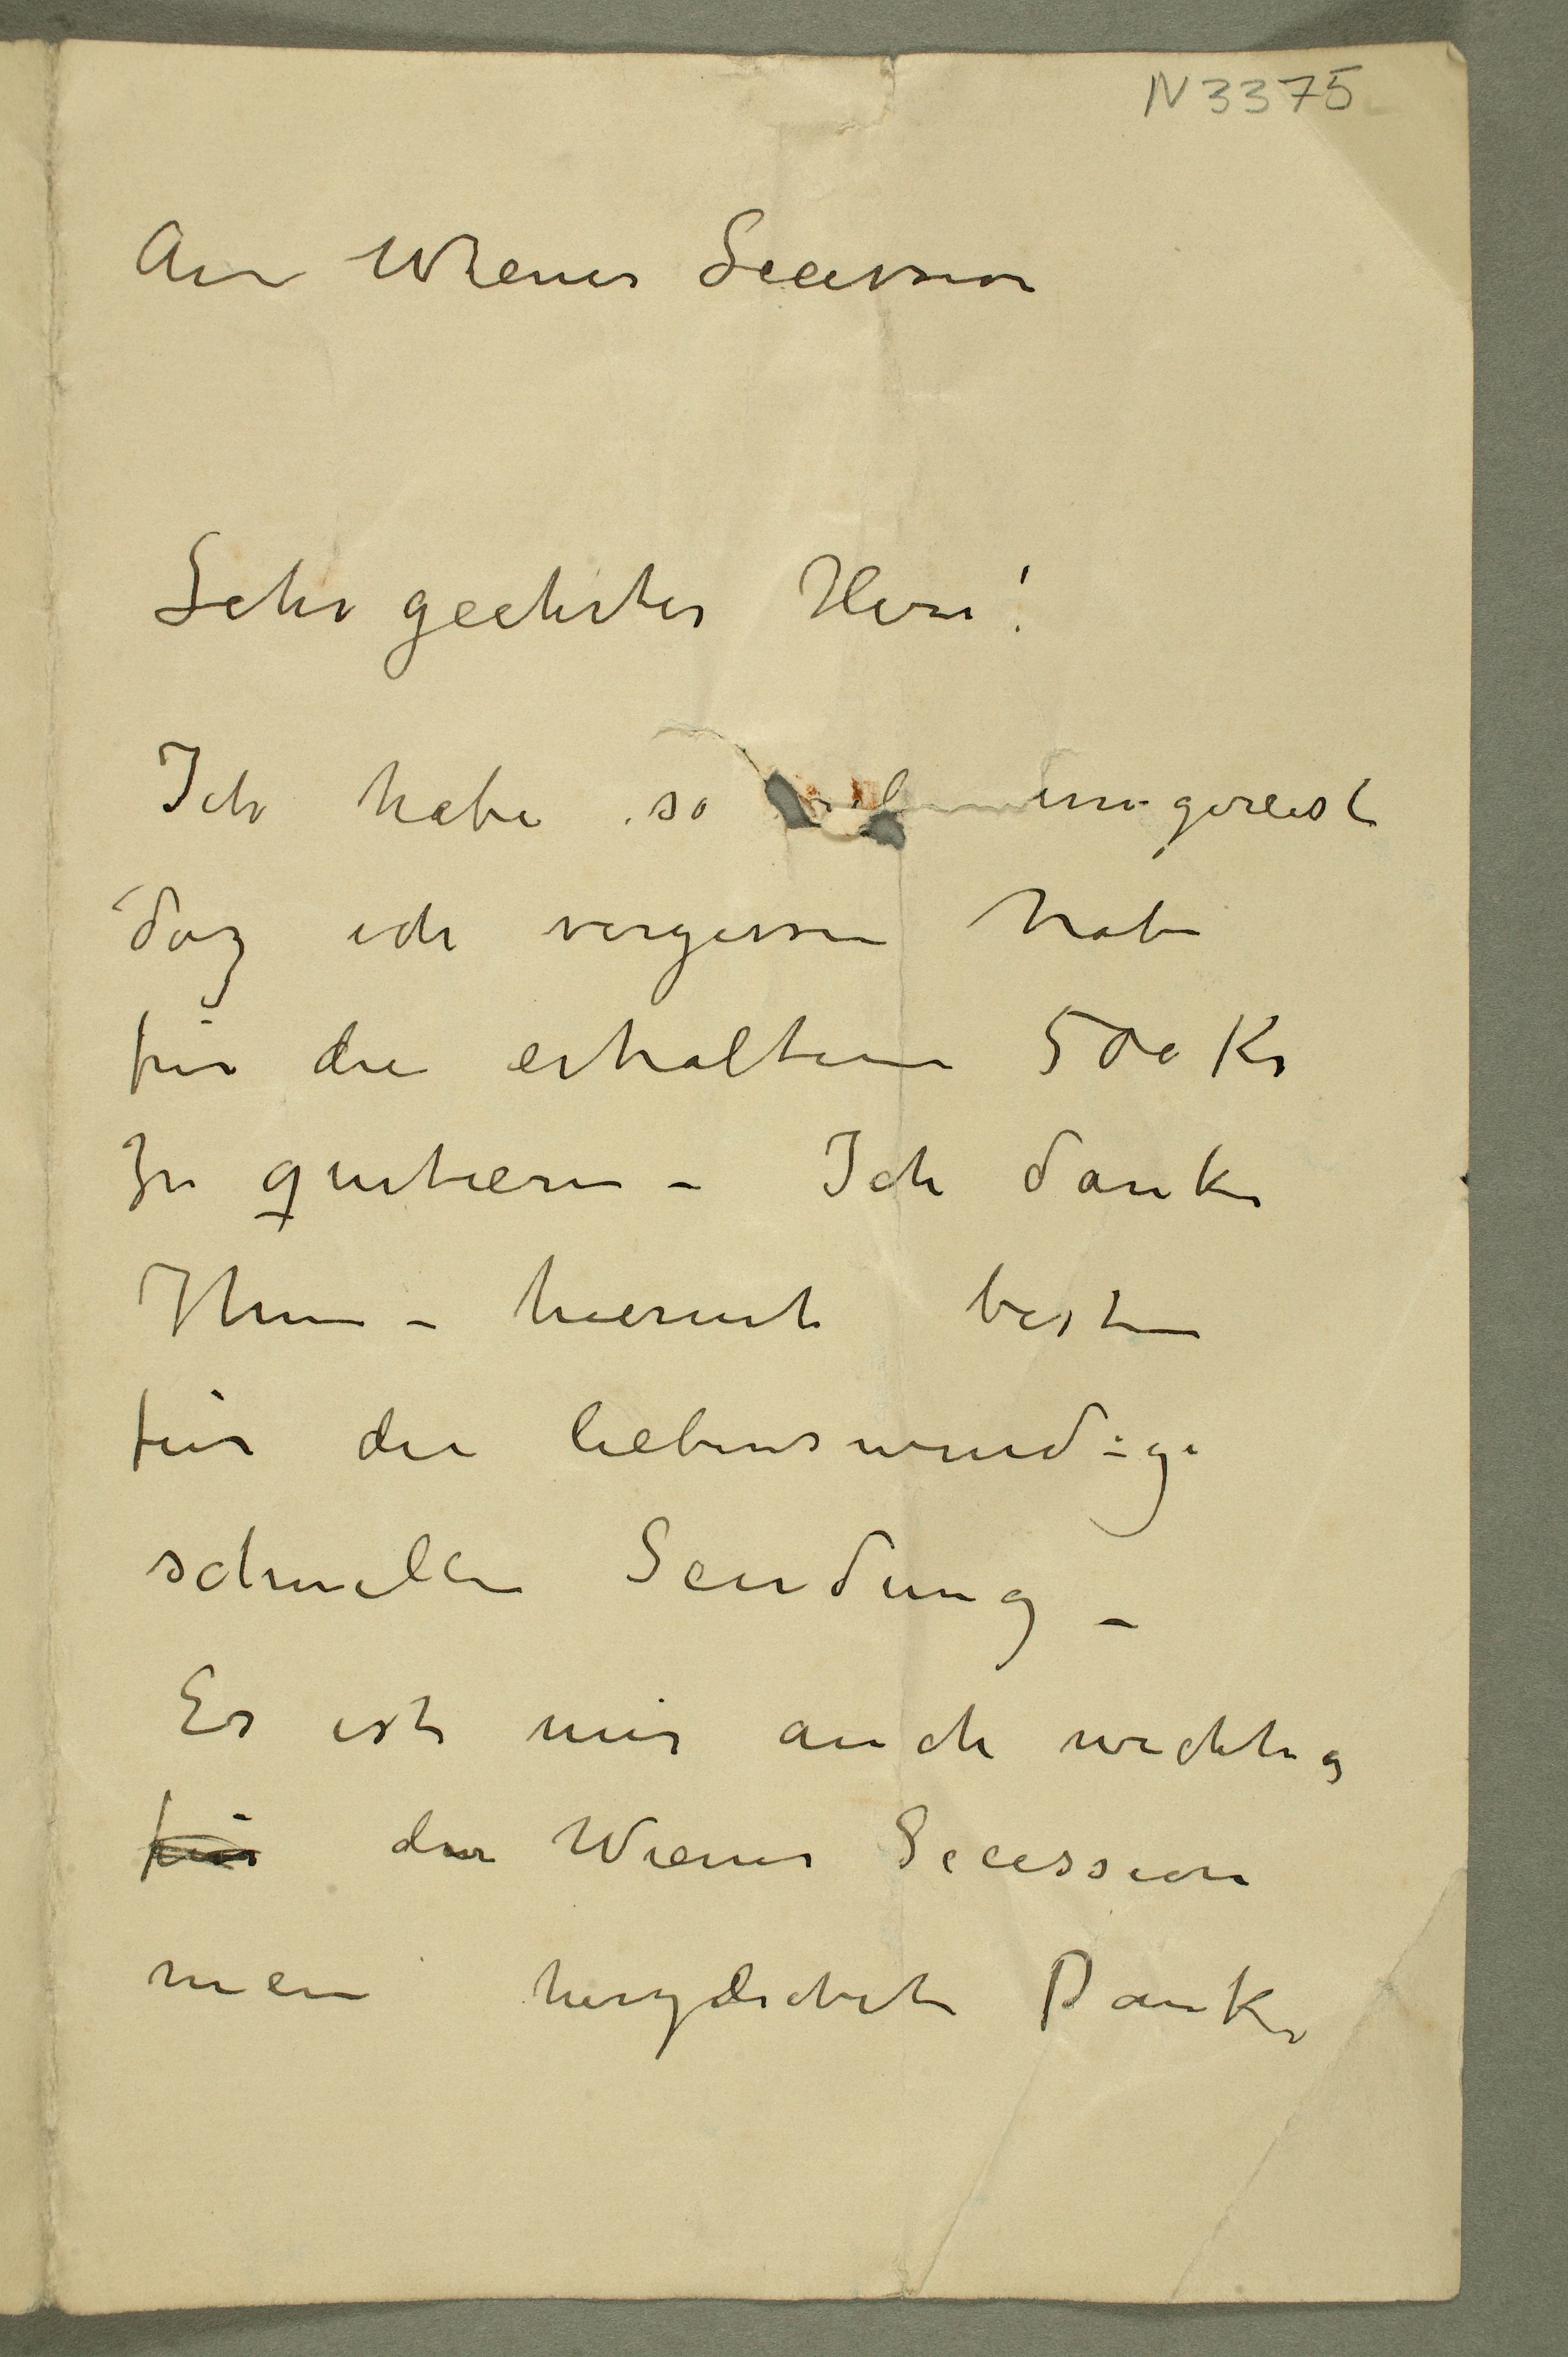 N 3375
An Wiener Secession
Sehr geehrter Herr!
Ich habe so umgereist
daß ich vergessen habe
für die erhaltenen 500 Kr
zu quitieren – Ich danke
Ihnen – hiermit besten
für die liebenswürdige
schnellen Sendung –
Es ist mir auch wichtig
für der Wiener Secession
mein herzlichste Danke